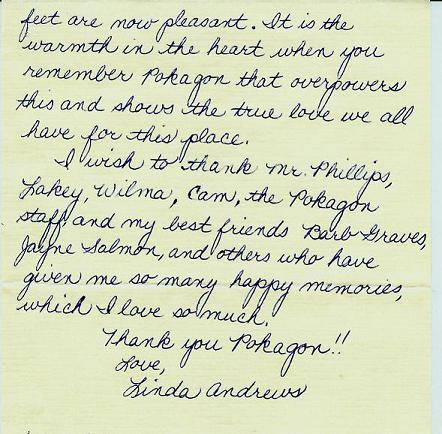 feet are now pleasant. It is the
warmth in the heart when you
remember Pokagon that overpowers
this and shows the true love we all
have for this place.
I wish to thank Mr. Phillips,
Lakey, Wilma, Cam, the Pokagon
staff and my best friends Barb Graves,
Jayne Salmon, and others who have
given me so many happy memories,
which I love so much.
Thank you Pokagon!!
Love,
Linda Andrews